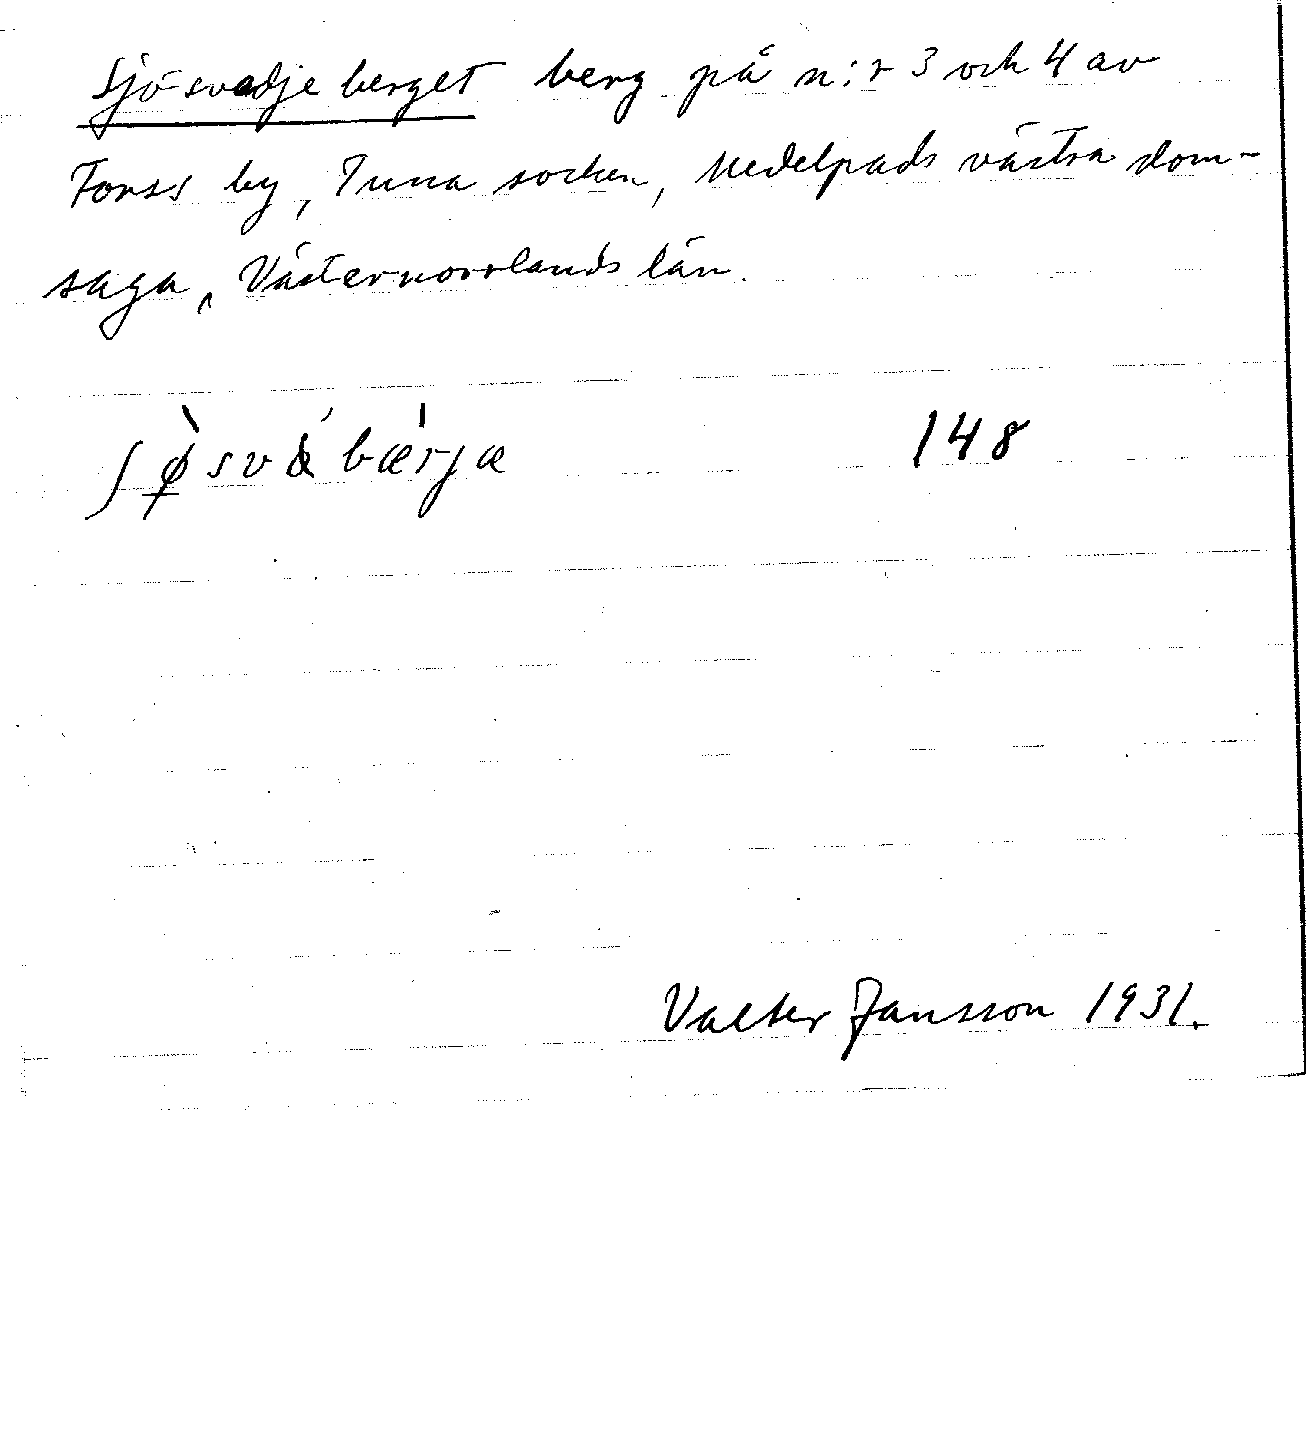 Sjösvedjeberget berg på n:r 3 och 4 av
Forss by, Tuna socken, Medelpads västra dom-
saga, Västernorrlands län.
ʃø̀svábæ̍rjæ 148
Valter Jansson 1931.